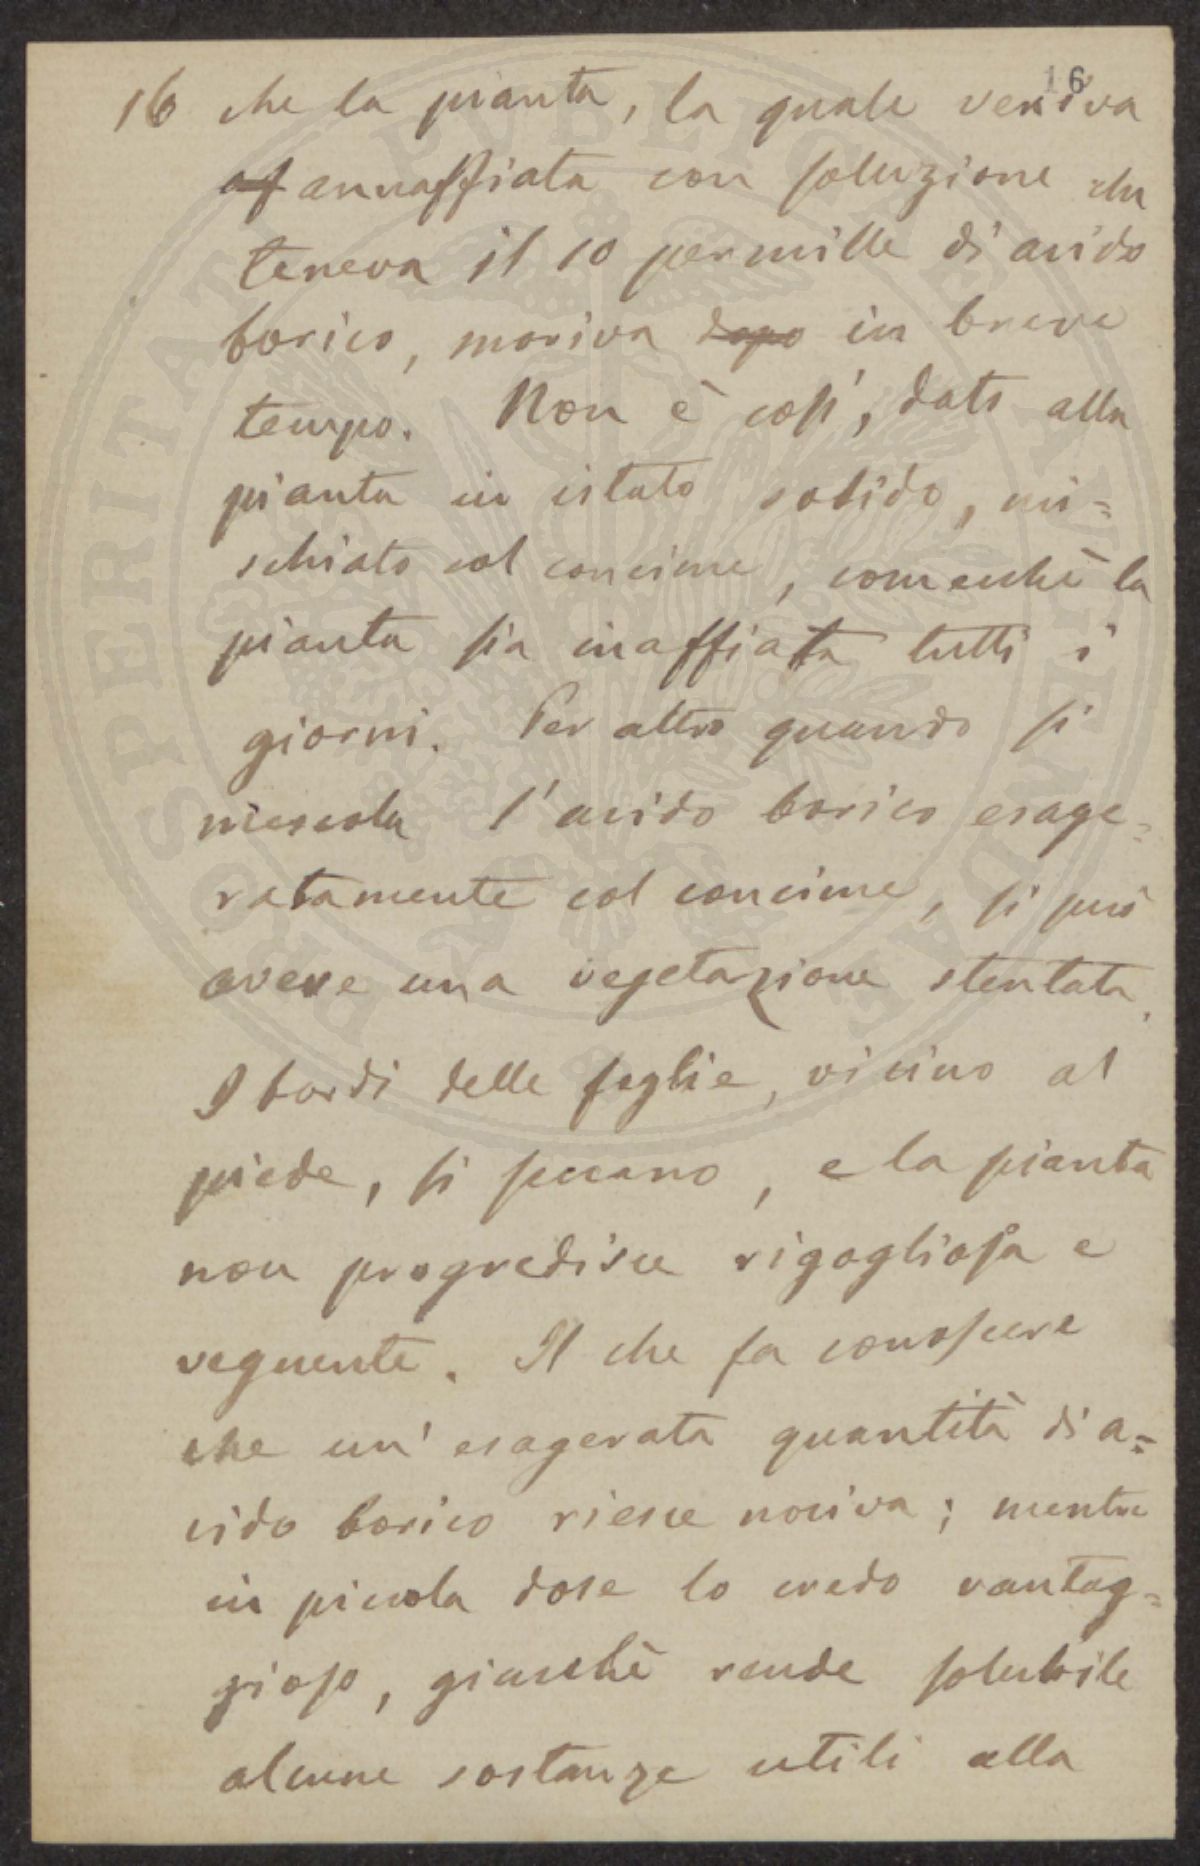 16
16 che la pianta, la quale veniva
af annaffiata con soluzione che
teneva il 10 per mille di acido
borico, moriva dopo in breve
tempo. Non è così, dato alla
pianta in istato solido, mi=
schiato col concime, comechè la
pianta sia inaffiata tutti i
giorni. Per altro quando si
mescola l'acido borico esage=
ratamente col concime, si può
avere una vegetazione stentata.
I bordi delle foglie, vicino al
piede, si seccano, e la pianta
non progredisce rigogliosa e
vegnente. Il che fa conoscere
che un' esagerata quantità di a=
cido borico riesce nociva; mentre
in piccola dose lo credo vantag=
gioso, giacchè rende solubile
alcune sostanze utili alla
PROSPERITATI PVBLICAE AVGENDAE